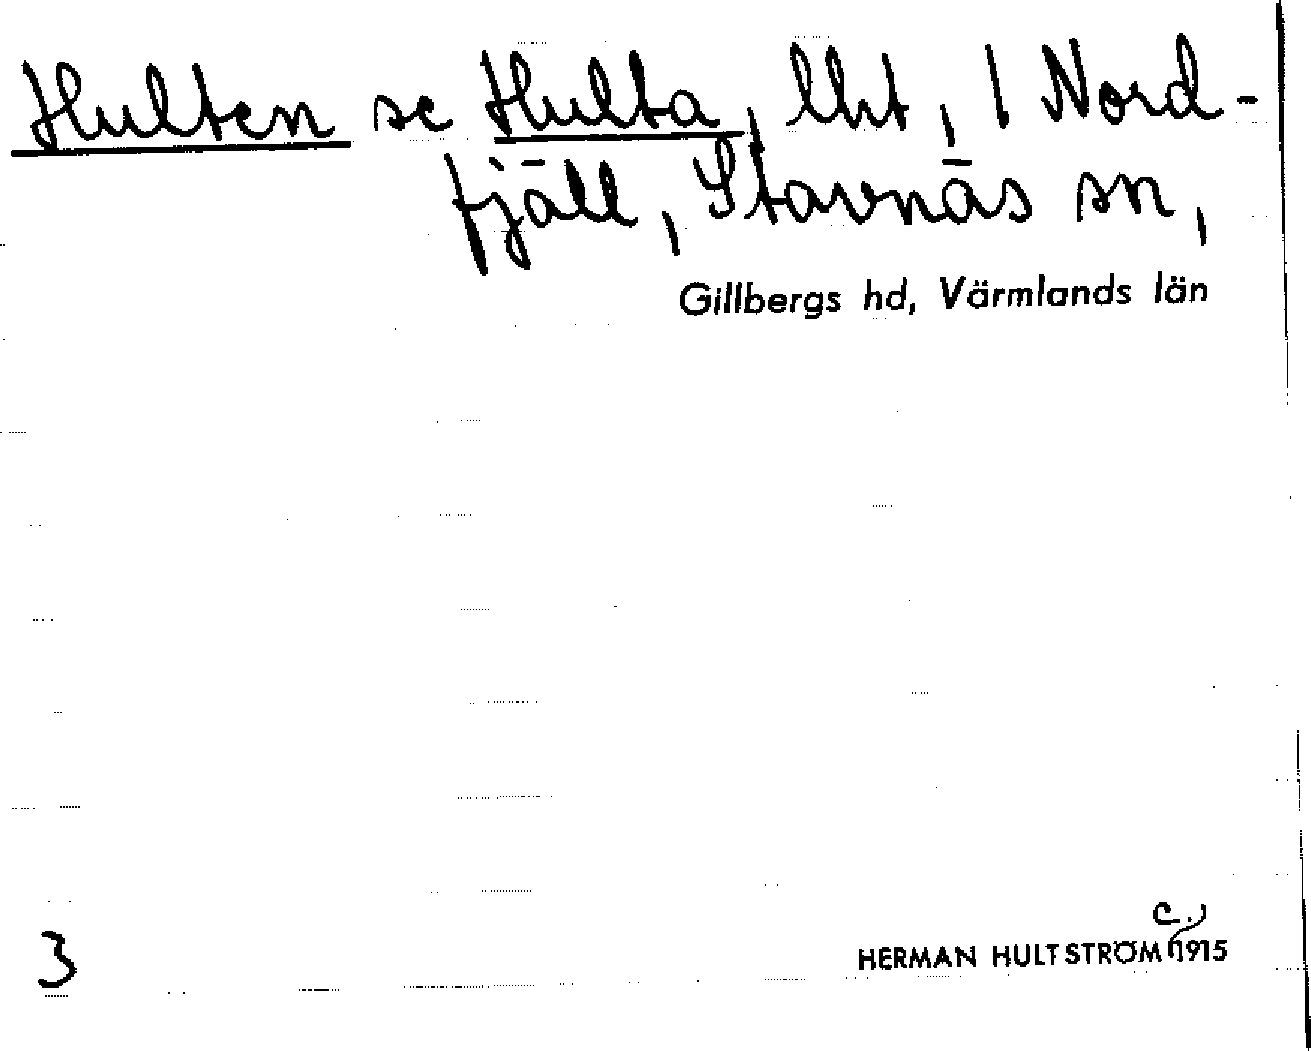 Hulten se Hulta, lht, 1 Nord-
fjäll, Stavnäs sn,
Gillbergs hd, Värmlands län
3
HERMAN HULTSTRÖM c., 1915